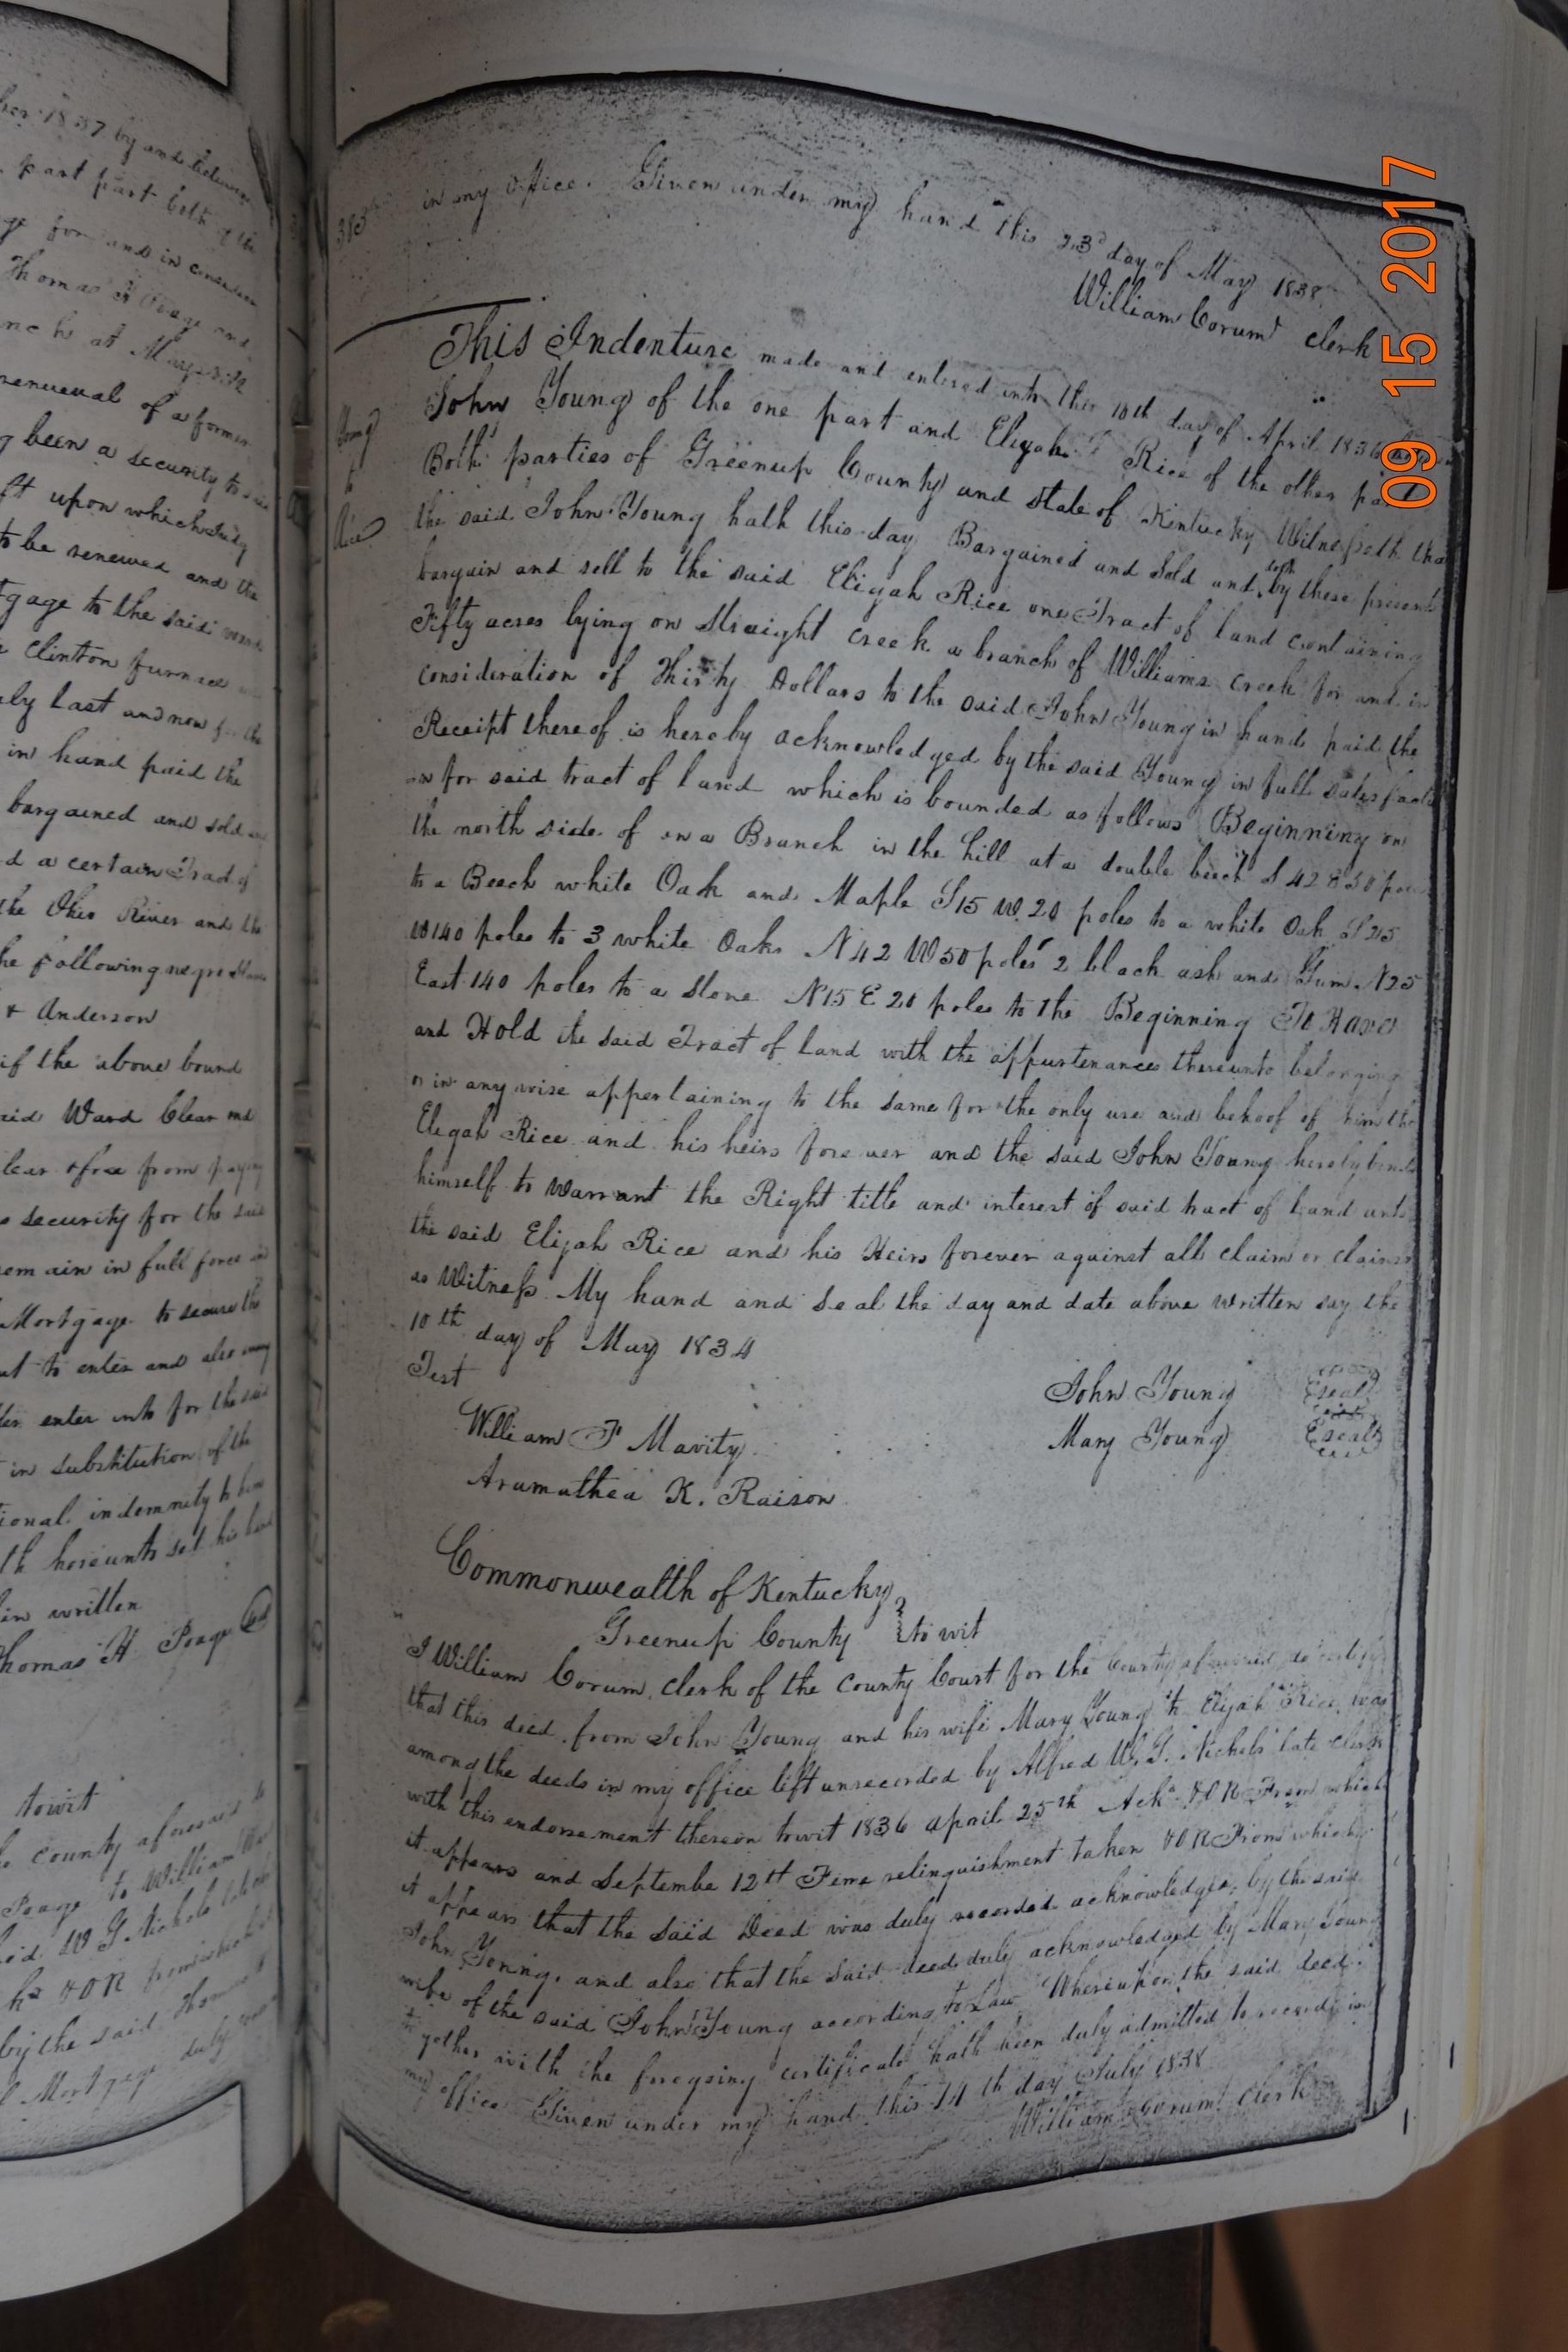 her 1837 by and between
part part both of the
ge for and in consider
Thomas H Poage and
nch at Maysvill
renewal of a former
g been a security to
ft upon which
to be renewed and the
tgage to the said
Clinton furnace
ly last and now for the
in hand paid the
bargained and sold and
d a certain Trad of
the Ohio River and the
he following negro Slaves
& Anderson
if the above bound
aid Ward Clear and
lear & free from paying
security for the said
emain in full force
Mortgage to secure the
ut to enter and also
enter into for the said
in substitution of the
ional indemnity to him
th hereunto set his hand
in written
Thomas H Poage
towit
County aforesaid
Poage to William
W G. Nichols late
h° & O R from which
by the said Thomas
Mortgage duly
in my Office. Given under my hand this 23d day of May 1838
William Corum Clerk
Young
to
Rice
This Indenture made and entered into this 10th day of April 1836
John Young of the one part and Elijah T Rice of the other part
Both parties of Greenup County and State of Kentucky Witnesseth that
the said John Young hath this day Bargained and Sold and doth by these present
bargain and sell to the said Elijah Rice one Tract of land containing
Fifty acres lying on Straight Creek a branch of Williams Creek for and in
consideration of Thirty Dollars to the said John Young in hand paid the
Receipt thereof is hereby acknowledged by the said Young in full satisfacti
on for said tract of land which is bounded as follows Beginning on
the north side of on a Branch in the hill at a double beech S 42 E 50 poles
to a Beech white Oak and Maple S15 W. 20 poles to a white Oak S 25
W 140 poles to 3 white Oaks N 42 W 50 poles 2 black ash and Gum N25
East 140 poles to a Stone N15 E 20 poles to the Beginning To Have
and Hold the said Tract of land with the appurtenances thereunto belonging
or in any wise appertaining to the same for the only use and behoof of him the
Elijah Rice and his heirs forever and the said John Young hereby binds
himself to warrant the Right title and interest of said tract of land unto
the said Elijah Rice and his Heirs forever against all claim or claims
as Witness My hand and seal the day and date above written say the
10th day of May 1834
Test
John Young Seal
William F Mavity
Mary Young Seal
Aramathea K. Raison
Commonwealth of Kentucky
Greenup County to wit
I William Corum, Clerk of the County Court for the County aforesaid do certify
that this deed from John Young and his wife Mary Young to Elijah Rice, was
among the deeds in my office left unrecorded by Alfred W. G. Nichols late clerk
with this endorsement thereon towit 1836 april 25th Ack° & O R From which
it appears and Septembe 12th Feme relinquishment taken & O R From which
it appears that the said Deed was duly recorded acknowledged by the said
John Young, and also that the said deed duly acknowledged by Mary Young
wife of the said John Young according to Law Whereupon the said deed
to gether with the foregoing certificate hath been duly admitted to record in
my office Given under my hand this 14th day July 1838
William Corum Clerk
09 15 2017